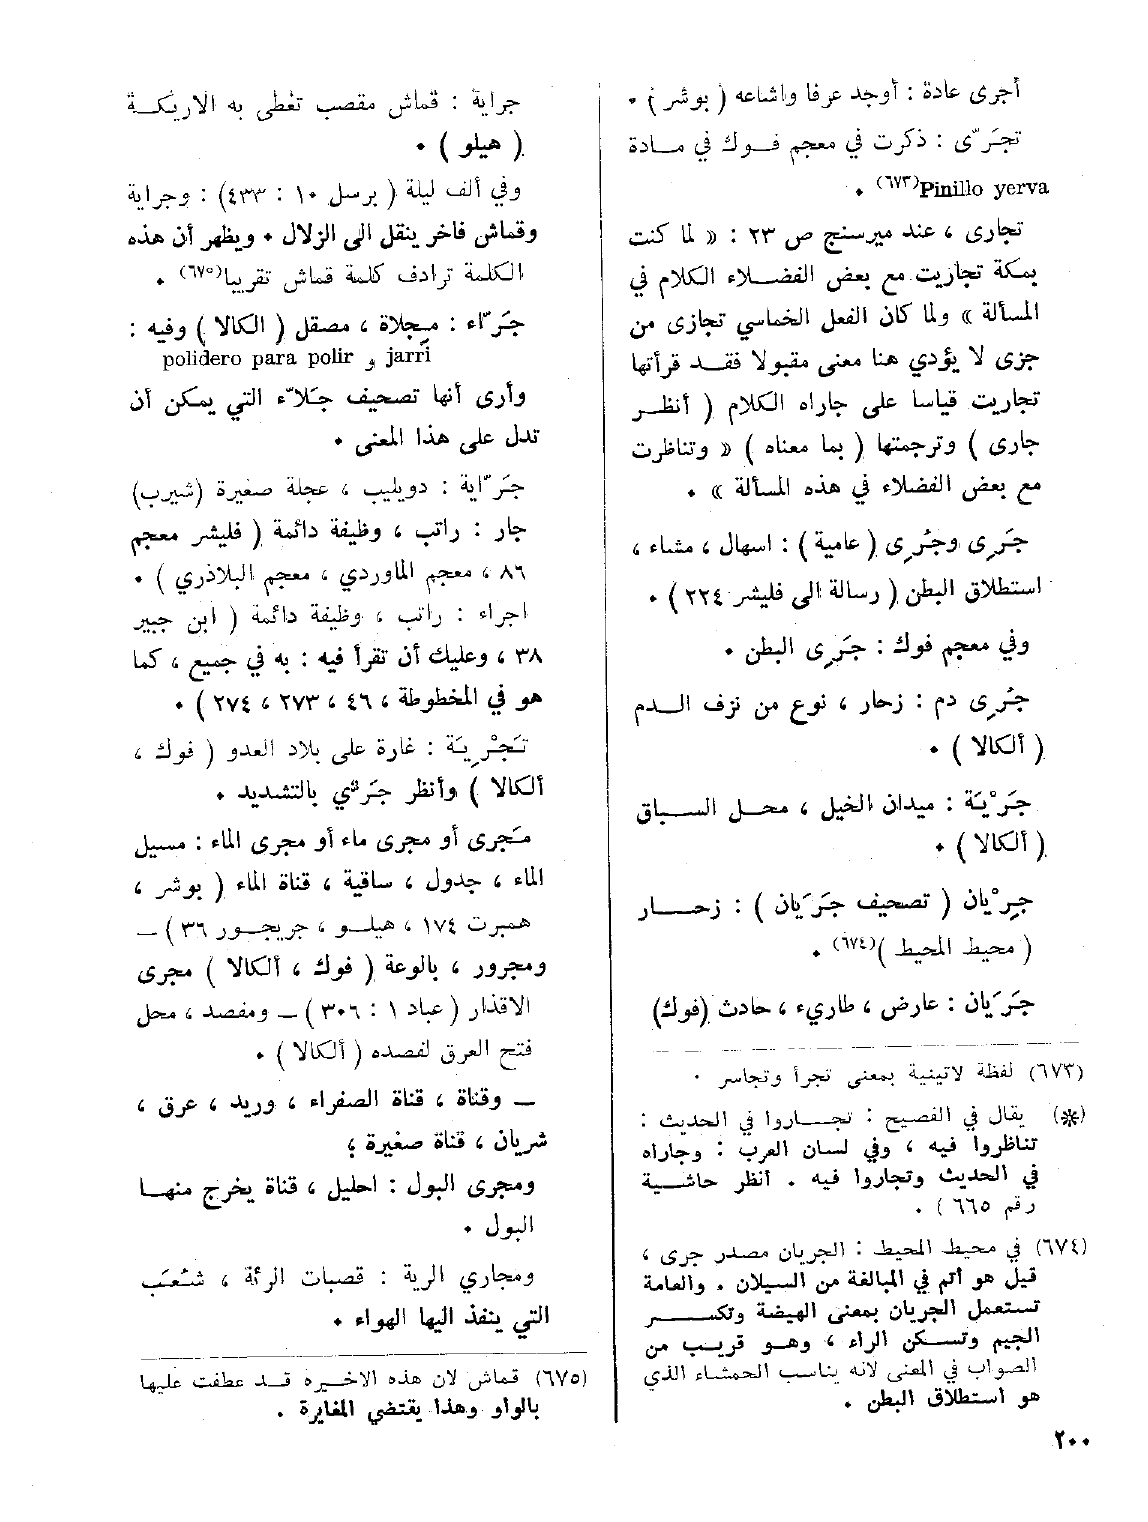 أجرى عادة : أوجد عرفا واشاعه ( بوشر ) •
تجَرّى : ذكرت في معجم فوك في مادة
Pinillo yerva(٦٧٣) •
تجارى ، عند ميرسنج ص ٢٣ : « لما كنت
بمكة تجاريت مع بعض الفضلاء الكلام في
المسألة » ولما كان الفعل الخماسي تجازى من
جزى لا يؤدي هنا معنى مقبولا فقد قرأتها
تجاريت قياسا على جاراه الكلام ( أنظر
جارى ) وترجمتها ( بما معناه ) « وتناظرت
مع بعض الفضلاء في هذه المسألة » •
جَرِى وجُرِى ( عامية ) : اسهال ، مشاء ،
استطلاق البطن ( رسالة الى فليشر ٢٢٤ ) •
وفي معجم فوك : جَرِى البطن •
جُرِى دم : زحار ، نوع من نزف الدم
( ألكالا ) •
جَرْيَة : ميدان الخيل ، محل السباق
( ألكالا ) •
جِرْيان ( تصحيف جَرَيان ) : زحار
( محيط المحيط )(٦٧٤) •
جَرَيان : عارض ، طاريء ، حادث (فوك)
(٦٧٣) لفظة لاتينية بمعنى تجرأ وتجاسر .
(*) يقال في الفصيح : تجاروا في الحديث :
تناظروا فيه ، وفي لسان العرب : وجاراه
في الحديث وتجاروا فيه . أنظر حاشية
رقم ٦٦٥ ) .
(٦٧٤) في محيط المحيط : الجريان مصدر جرى ،
قيل هو أتم في المبالغة من السيلان . والعامة
تستعمل الجريان بمعنى الهيضة وتكسر
الجيم وتسكن الراء ، وهو قريب من
الصواب في المعنى لانه يناسب الحمشاء الذي
هو استطلاق البطن .
جراية : قماش مقصب تغطى به الاريكة
( هيلو ) •
وفي ألف ليلة ( برسل ١٠ : ٤٣٣) : وجراية
وقماش فاخر ينقل الى الزلال • ويظهر أن هذه
الكلمة ترادف كلمة قماش تقريبا(٦٧٥) •
جَرّاء : مِجلاة ، مصقل ( الكالا ) وفيه :
jarrí و polidero para polir
وأرى أنها تصحيف جَلاّء التي يمكن أن
تدل على هذا المعنى •
جَرّاية : دويليب ، عجلة صغيرة (شيرب)
جار : راتب ، وظيفة دائمة ( فليشر معجم
٨٦ ، معجم الماوردي ، معجم البلاذري ) •
اجراء : راتب ، وظيفة دائمة ( ابن جبير
٣٨ ، وعليك أن تقرأ فيه : به في جميع ، كما
هو في المخطوطة ، ٤٦ ، ٢٧٣ ، ٢٧٤ ) •
تَجْرِيَة : غارة على بلاد العدو ( فوك ،
ألكالا ) وأنظر جَرّي بالتشديد •
مَجرى أو مجرى ماء أو مجرى الماء : مسيل
الماء ، جدول ، ساقية ، قناة الماء ( بوشر ،
همبرت ١٧٤ ، هيلو ، جريجور ٣٦ ) ــ
ومجرور ، بالوعة ( فوك ، ألكالا ) مجرى
الاقذار ( عباد ١ : ٣٠٦ ) ــ ومفصد ، محل
فتح العرق لفصده ( ألكالا ) •
ــ وقناة ، قناة الصفراء ، وريد ، عرق ،
شريان ، قناة صغيرة ؛
ومجرى البول : احليل ، قناة يخرج منها
البول •
ومجاري الرية : قصبات الرئة ، شُعَب
التي ينفذ اليها الهواء •
(٦٧٥) قماش لان هذه الاخيرة قد عطفت عليها
بالواو وهذا يقتضي المغايرة .
٢٠٠